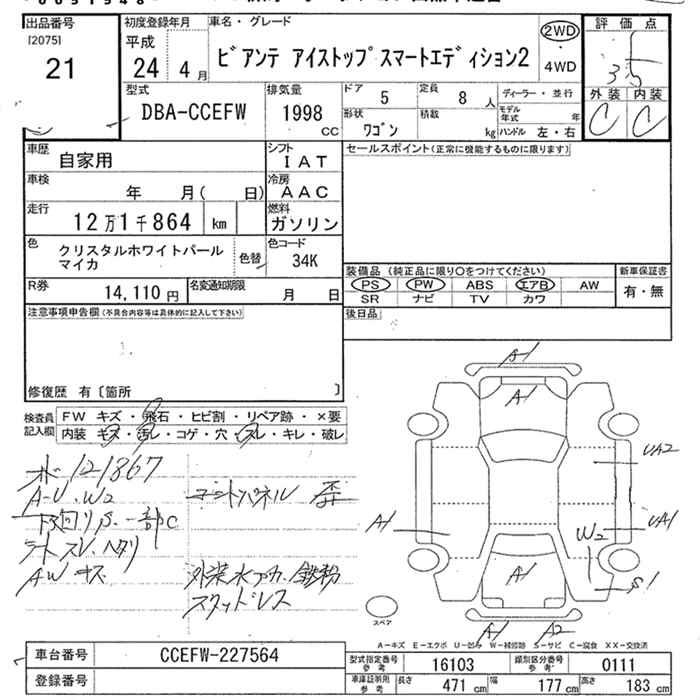 出品番号
[2075]
21
初度登録年月
平成
24年 4月
車名・グレード
ビアンテ アイストップ スマートエディション2
2WD
・
4WD
評価点
3.5
外装 内装
C C
型式
DBA-CCEFW
排気量
1998
CC
ドア 5
定員 8 人
形状 ワゴン
積載 kg
ディーラー・並行
モデル年式 年
ハンドル 左・右
車歴 自家用
シフト IAT
車検 年 月( 日)
冷房 AAC
走行 12万1千864 km
燃料 ガソリン
色 クリスタルホワイトパール
マイカ
色替
色コード 34K
R券 14,110 円
名変通知期限 月 日
セールスポイント(正常に機能するものに限ります)
装備品 (純正品に限り○をつけてください)
PS PW ABS エアB AW
SR ナビ TV カワ
新車保証書
有・無
後日品
注意事項申告欄(不具合内容等は具体的に記入して下さい)
修復歴 有〔箇所 〕
検査員記入欄
FW キズ・飛石・ヒビ割・リペア跡・×要
内装 キズ・汚レ・コゲ・穴・スレ・キレ・破レ
121867
A-U.W2
下廻りS.一部C
シートスレ.ヘタリ
AWキズ
コートパネル 歪
外装水アカ.鉄粉
スタッドレス
A-1
A1
UA2
A1
UA1
W2
A1
S1
スペア
A-1 A2
A-キズ E-エクボ U-凹み W-補修跡 S-サビ C-腐食 XX-交換済
車台番号 CCEFW-227564
登録番号
型式指定番号 参考 16103
類別区分番号 参考 0111
車庫証明用 参考 長さ 471 cm 幅 177 cm 高さ 183 cm